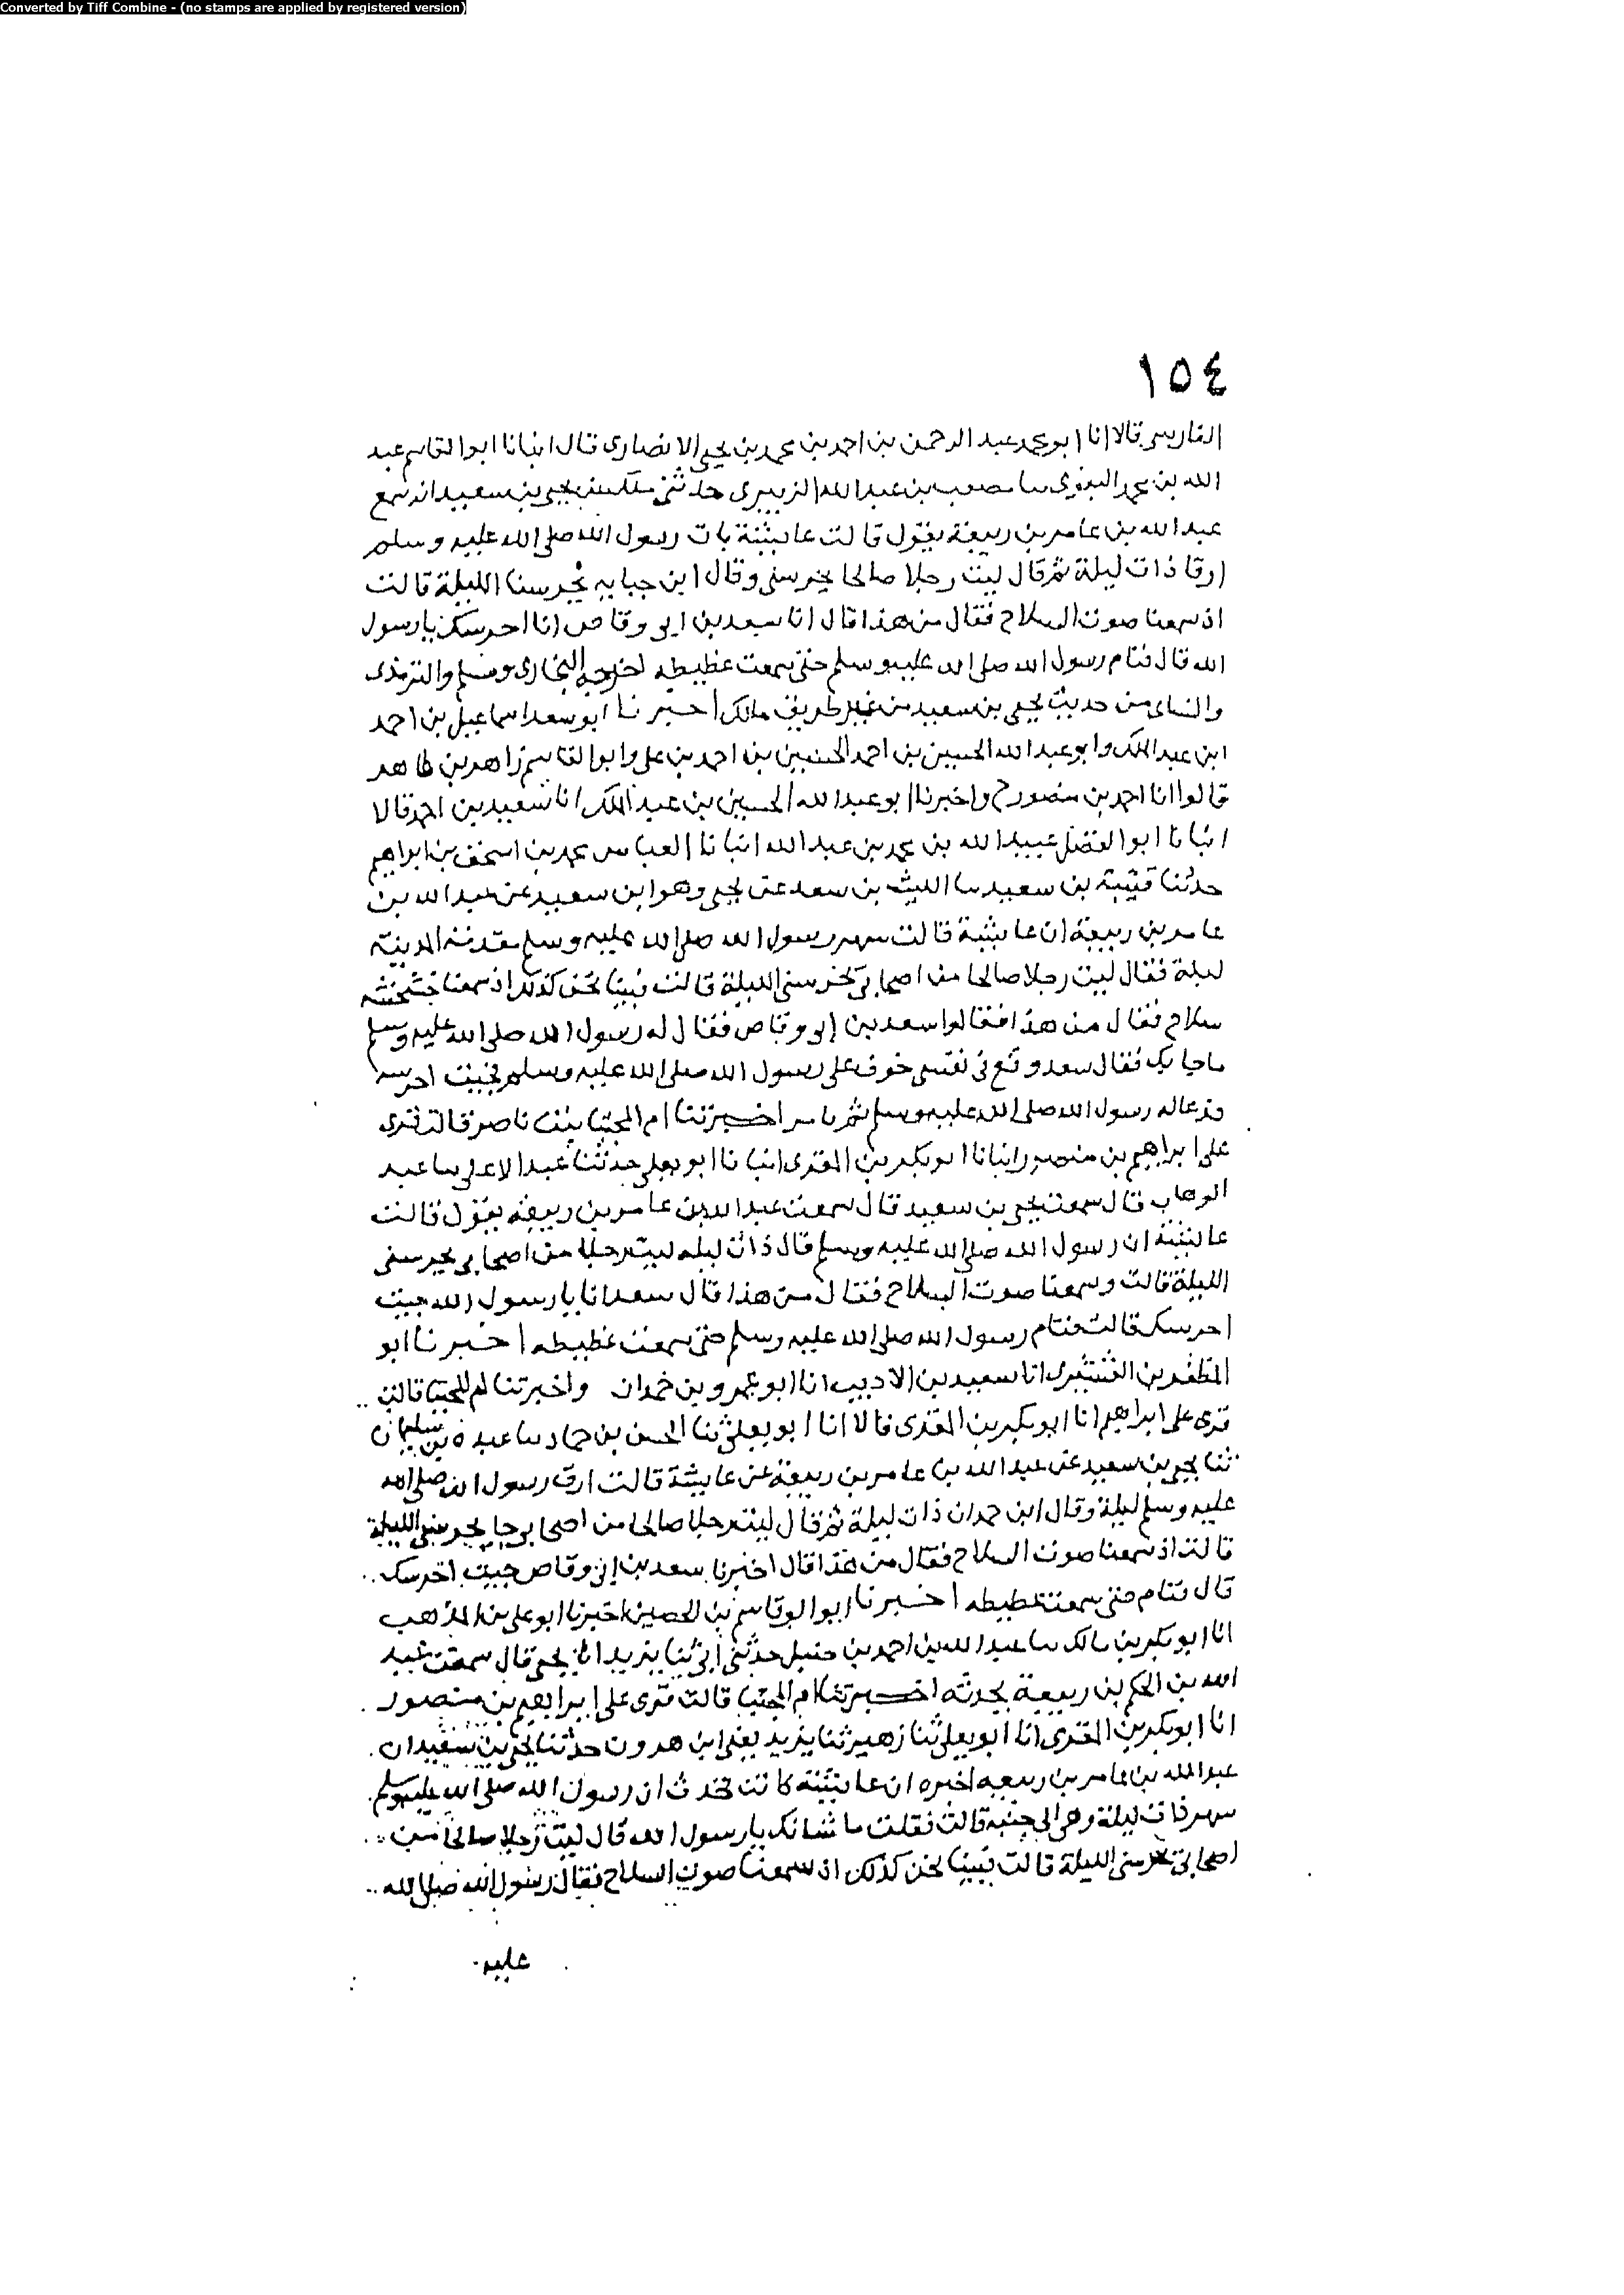 Converted by Tiff Combine - (no stamps are applied by registered version)
١٥٤
الفارسى قالا انا ابو محمد عبد الرحمن بن احمد بن محمد بن يحيى الانصارى قال انبانا ابوا القاسم عبد
الله بن محمد البغوى سا مصعب بن عبد الله الزبيرى حدثنى ملك عن يحيى بن سعيد انه سمع
عبد الله بن عامر بن ربيعة يقول قالت عايشة بات رسول الله صلى الله عليه وسلم
ارقا ذات ليلة ثم قال ليت رجلا صالحا يحرسنى وقال ابن حبابه يحرسنا الليلة قالت
اذ سمعنا صوت السلاح فقال من هذا قال انا سعد بن ابى وقاص انا احرسك يا رسول
الله قال فنام رسول الله صلى الله عليه وسلم حتى سمعت غطيطه اخرجه البخارى ومسلم والترمذى
والنساى من حديث يحيى بن سعيد من غير طريق مالك اخبرنا ابو سعد اسماعيل بن احمد
ابن عبد الملك وابو عبد الله الحسين بن احمد الحسين بن احمد بن على وابوا القاسم زاهر بن طاهر
قالوا انا احمد بن منصور ح واخبرنا ابو عبد الله الحسين بن عبد الملك انا سعيد بن احمد قالا
انبانا ابوا الفضل عبيد الله بن محمد بن عبد الله انبانا العباس محمد بن اسحق بن ابراهيم
حدثنا قتيبة بن سعيد سا الليث بن سعد عن يحيى وهو ابن سعيد عن عبد الله بن
عامر بن ربيعة ان عايشة قالت سهر رسول الله صلى الله عليه وسلم مقدمه المدينة
ليلة فقال ليت رجلا صالحا من اصحابى يحرسنى الليلة قالت فبينا نحن كذلك اذ سمعنا خشخشه
سلاح فقال من هذا فقالوا سعد بن ابى وقاص فقال له رسول الله صلى الله عليه وسلم
ماجا بك فقال سعد وقع فى نفسى خوف على رسول الله صلى الله عليه وسلم فجيت احرسه
فدعا له رسول الله صلى الله عليه وسلم ثم نام اخبرتنا ام المجتبا بنت ناصر قالت قرى
على ابراهيم بن منصور انبانا ابو بكر بن المقرى انبانا ابو يعلى حدثنا عبد الاعلى سا عبد
الوهاب قال سمعت يحيى بن سعيد قال سمعت عبد الله بن عامر بن ربيعه يقول قالت
عايشة ان رسول الله صلى الله عليه وسلم قال ذات ليله ليت رجلا من اصحابى يحرسنى
الليلة قالت وسمعنا صوت السلاح فقال من هذا قال سعد انا يا رسول الله جيت
احرسك قالت فنام رسول الله صلى الله عليه وسلم حتى سمعت غطيطه اخبرنا ابو
المظفر بن القشيرى انا سعيد بن الاديب انا ابو عمرو بن حمدان واخبرتنا ام المجتبا قالت
قرى على ابراهيم انا ابو بكر بن المقرى قالا انا ابو يعلى ثنا الحسن بن حماد سا عبدة بن سليمان
ثنا يحيى بن سعيد عن عبد الله بن عامر بن ربيعة عن عايشة قالت ارق رسول الله صلى الله
عليه وسلم ليلة وقال ابن حمدان ذات ليلة ثم قال ليت رجلا صالحا من اصحابى يحرسنى الليلة
قالت اذ سمعنا صوت السلاح فقال من هذا قال اخبرنا سعد بن ابى وقاص جيت احرسك
قال فنام حتى سمعت غطيطه اخبرنا ابوا الوقاسم بن الحصين اخبرنا ابو على بن المذهب
انا ابو بكر بن مالك سا عبد الله بن احمد بن حنبل حدثنى ابى ثنا يزيد انا يحيى قال سمعت عبد
الله بن الحكم بن ربيعة يحدثه اخبرتنا ام المجتبا قالت قرى على ابراهيم بن منصور
انا ابو بكر بن المقرى انا ابو يعلى ثنا زهير ثنا يزيد يعنى ابن هرون حدثنا يحيى بن سعيد ان
عبد الله بن عامر بن ربيعه اخبره ان عايشة كانت تحدث ان رسول الله صلى الله عليه وسلم
سهر ذات ليلة وهى الى جنبه قالت فقلت ما شانك يا رسول الله قال ليت رجلا صالحا من
اصحابى يحرسنى الليلة قالت فبينا نحن كذلك اذ سمعنا صوت السلاح فقال رسول الله صلى الله
عليه